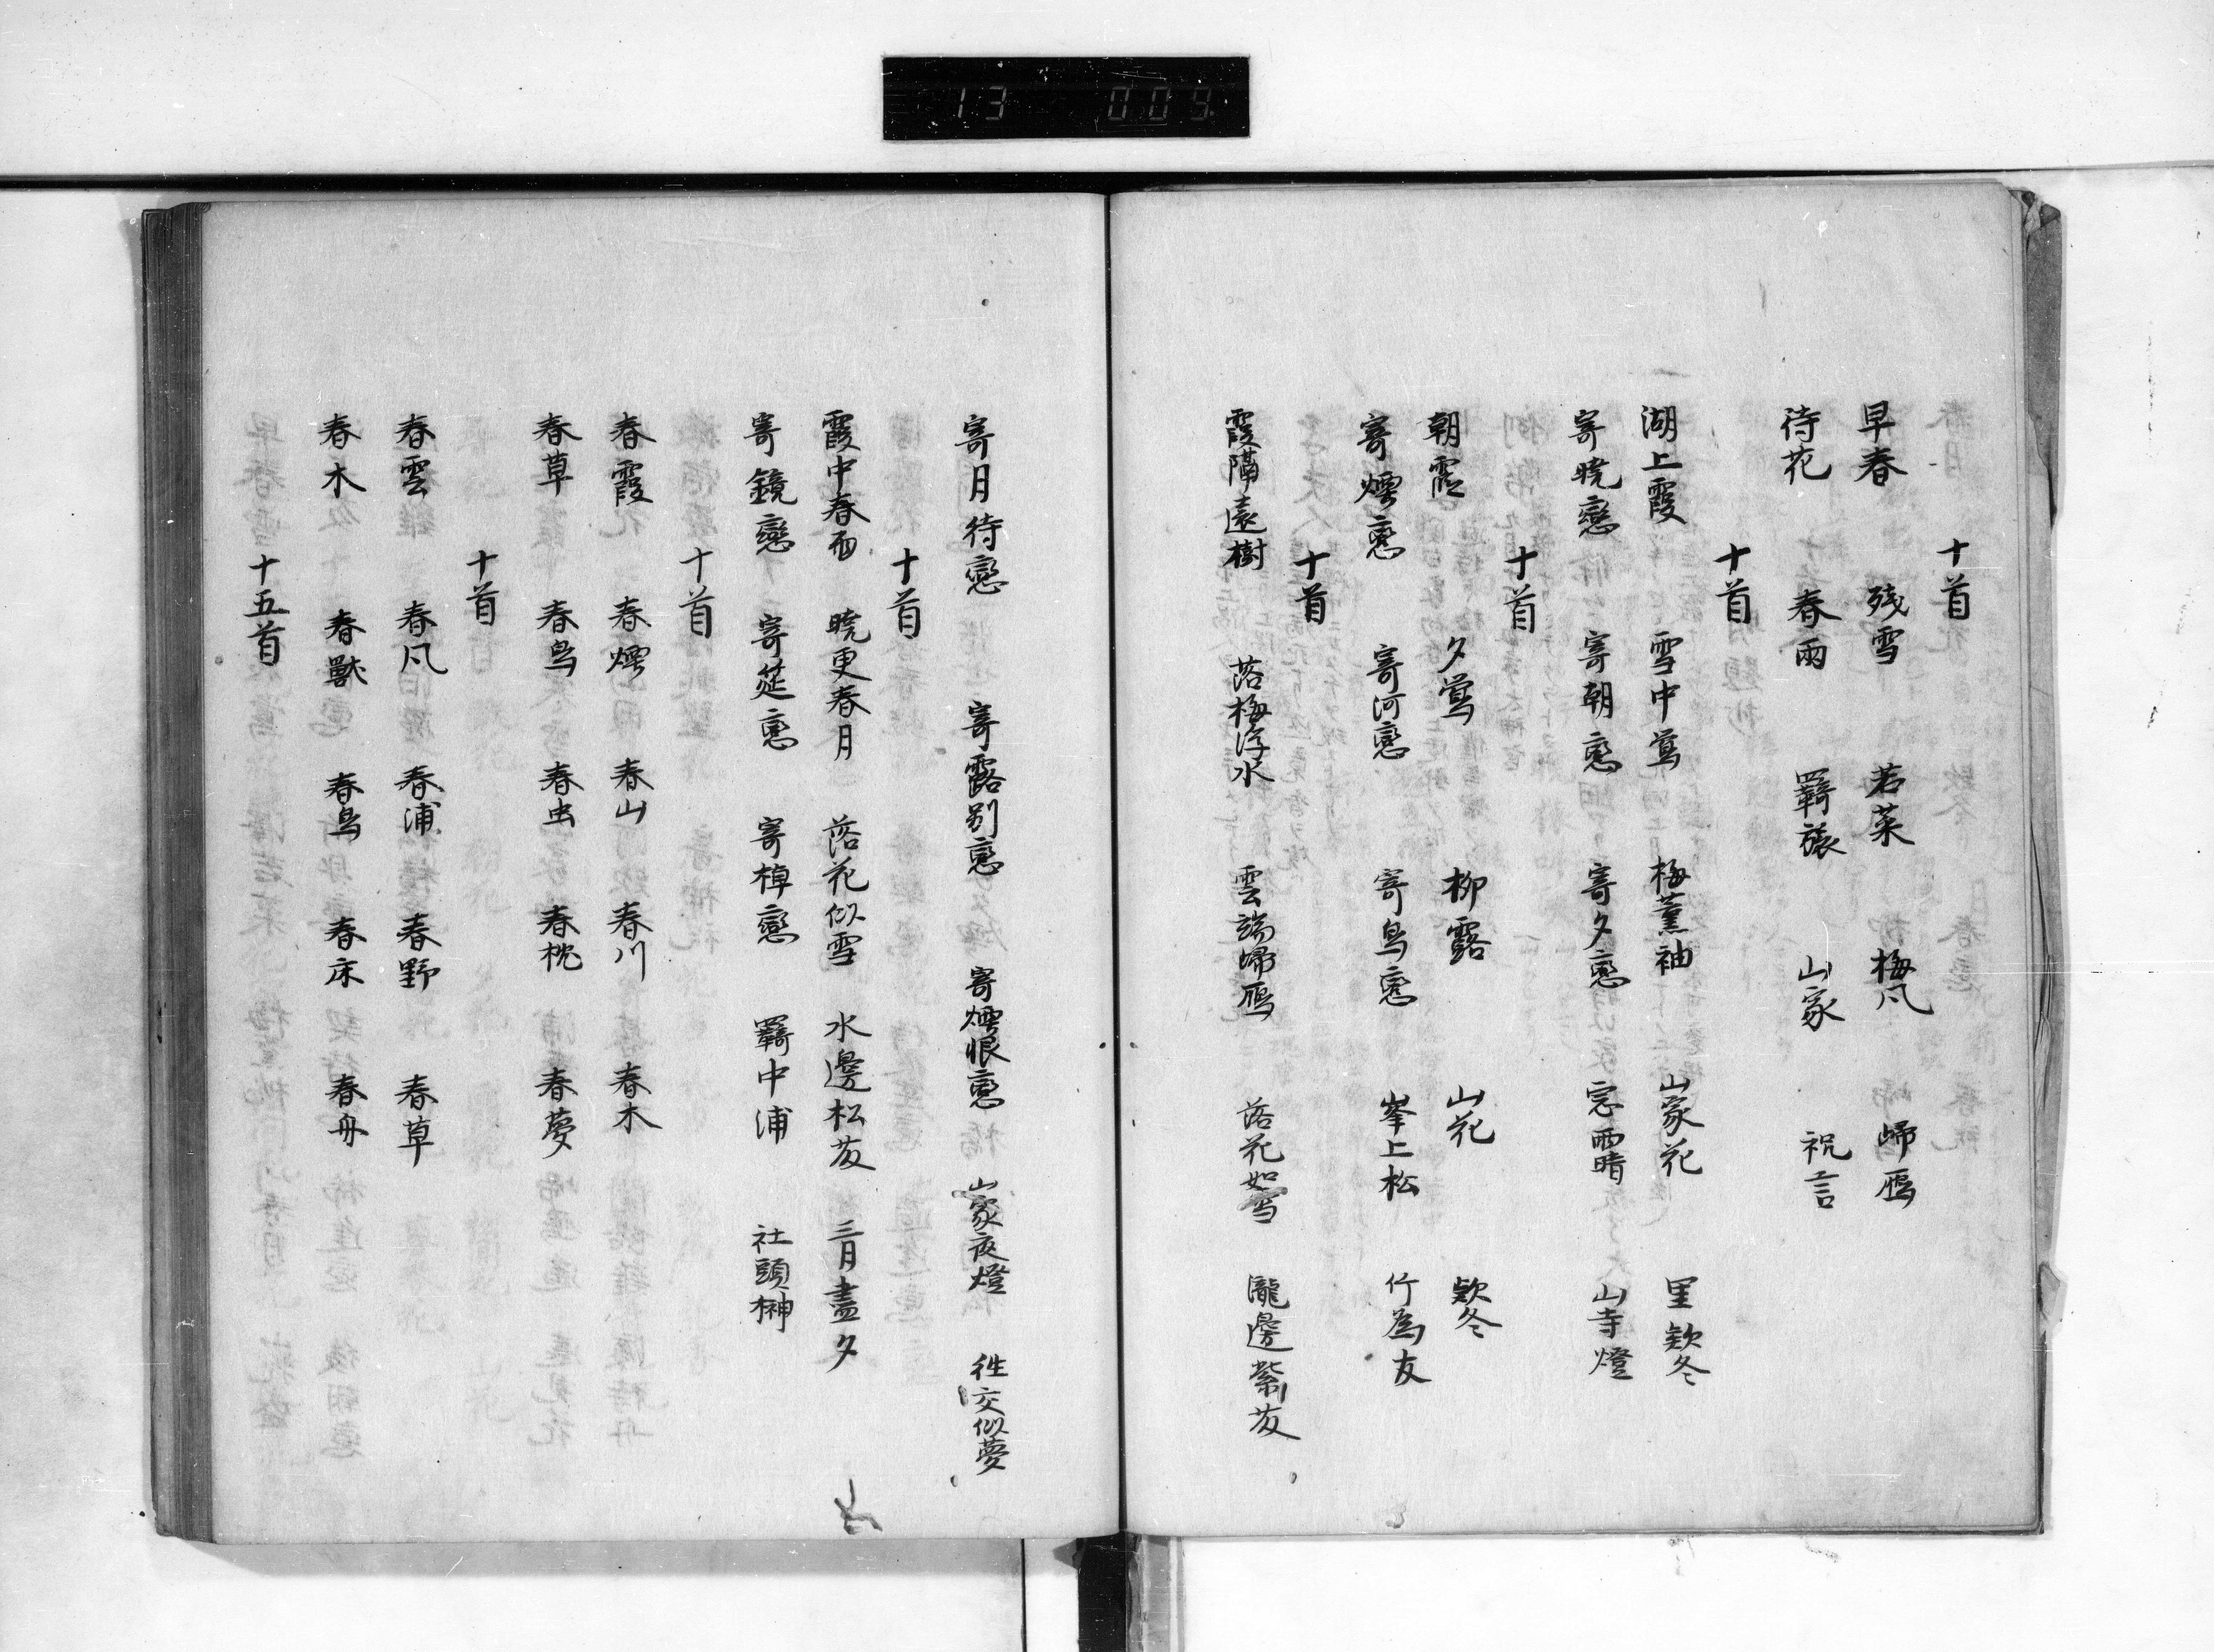 13 009
十首
早春 残雪 若菜 梅風 帰鴈
待花 春雨 羇旅 山家 祝言
十首
湖上霞 雪中鶯 梅薫袖 山家花 里欵冬
寄暁戀 寄朝戀 寄夕戀 窓雨晴 山寺燈
十首
朝霞 夕鶯 柳露 山花 欵冬
寄煙戀 寄河戀 寄鳥戀 峯上松 竹為友
十首
霞隔遠樹 落梅浮水 雲端帰鴈 落花如雪 瀧邊紫藤
寄月待戀 寄露別戀 寄煙恨戀 山家夜燈 往交似夢
十首
霞中春雨 暁更春月 落花似雪 水邊松藤 三月盡夕
寄鏡戀 寄筵戀 寄棹戀 羇中浦 社頭榊
十首
春霞 春煙 春山 春川 春木
春草 春鳥 春虫 春枕 春夢
十首
春雲 春風 春浦 春野 春草
春木 春獣 春鳥 春床 春舟
十五首